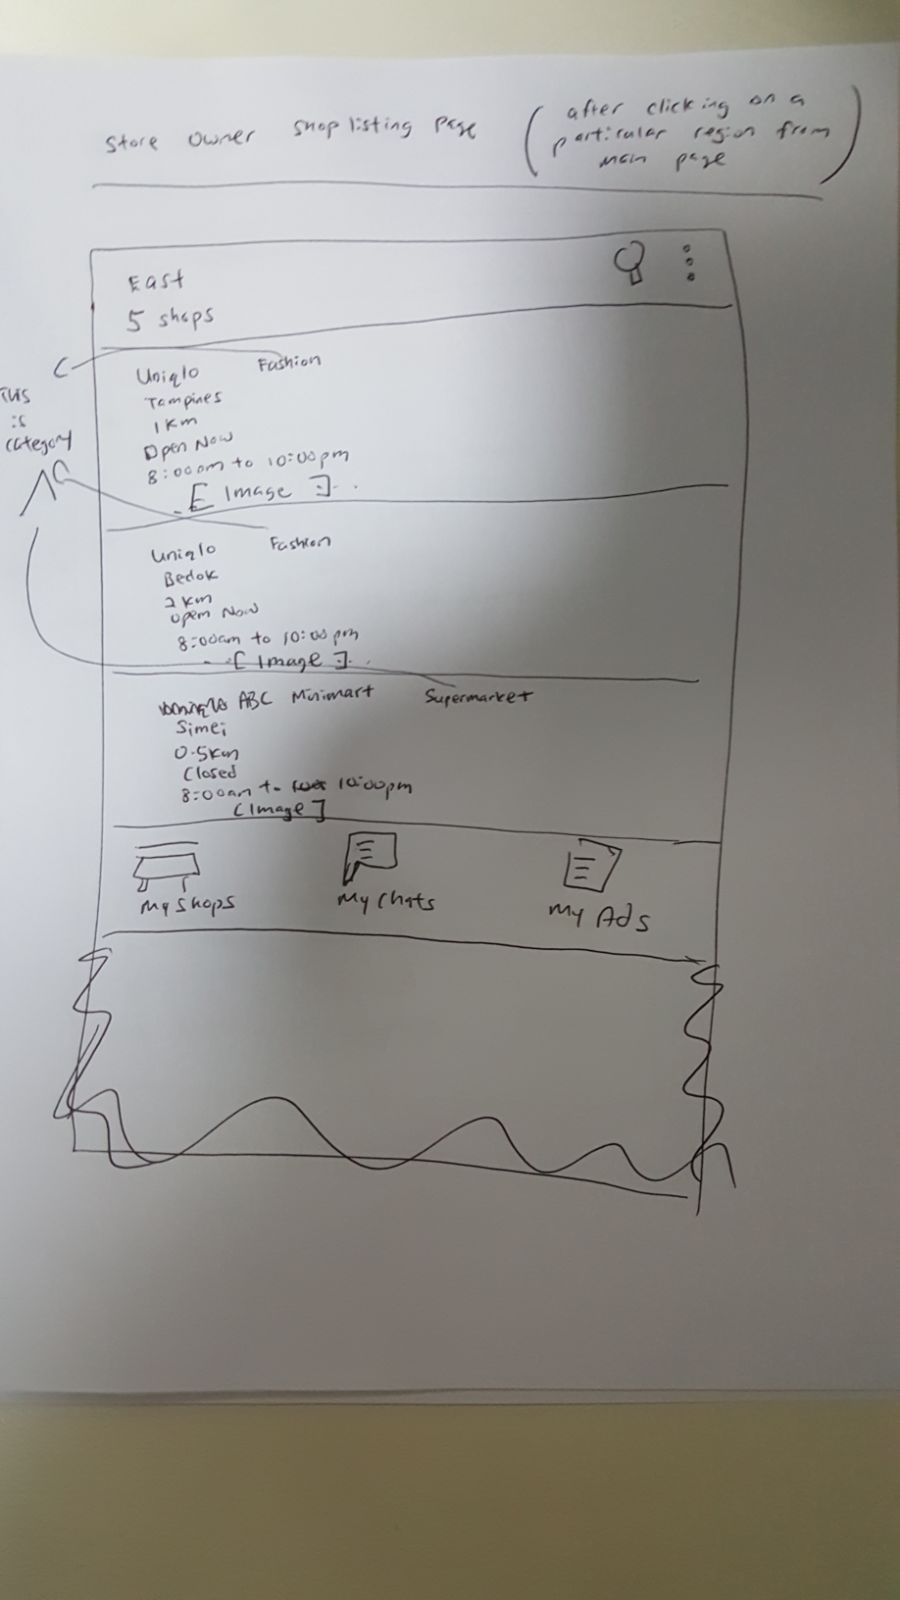 Store Owner Shop listing Page
(after clicking on a
particular region from
main page)
East
5 shops
This
is
category
Uniqlo Fashion
Tampines
1 km
Open Now
8:00am to 10:00pm
[ Image ]
Uniqlo Fashion
Bedok
2 km
Open Now
8:00am to 10:00pm
[ Image ]
ABC Minimart Supermarket
Simei
0.5km
Closed
8:00am to 10:00pm
[Image]
My Shops My Chats My Ads